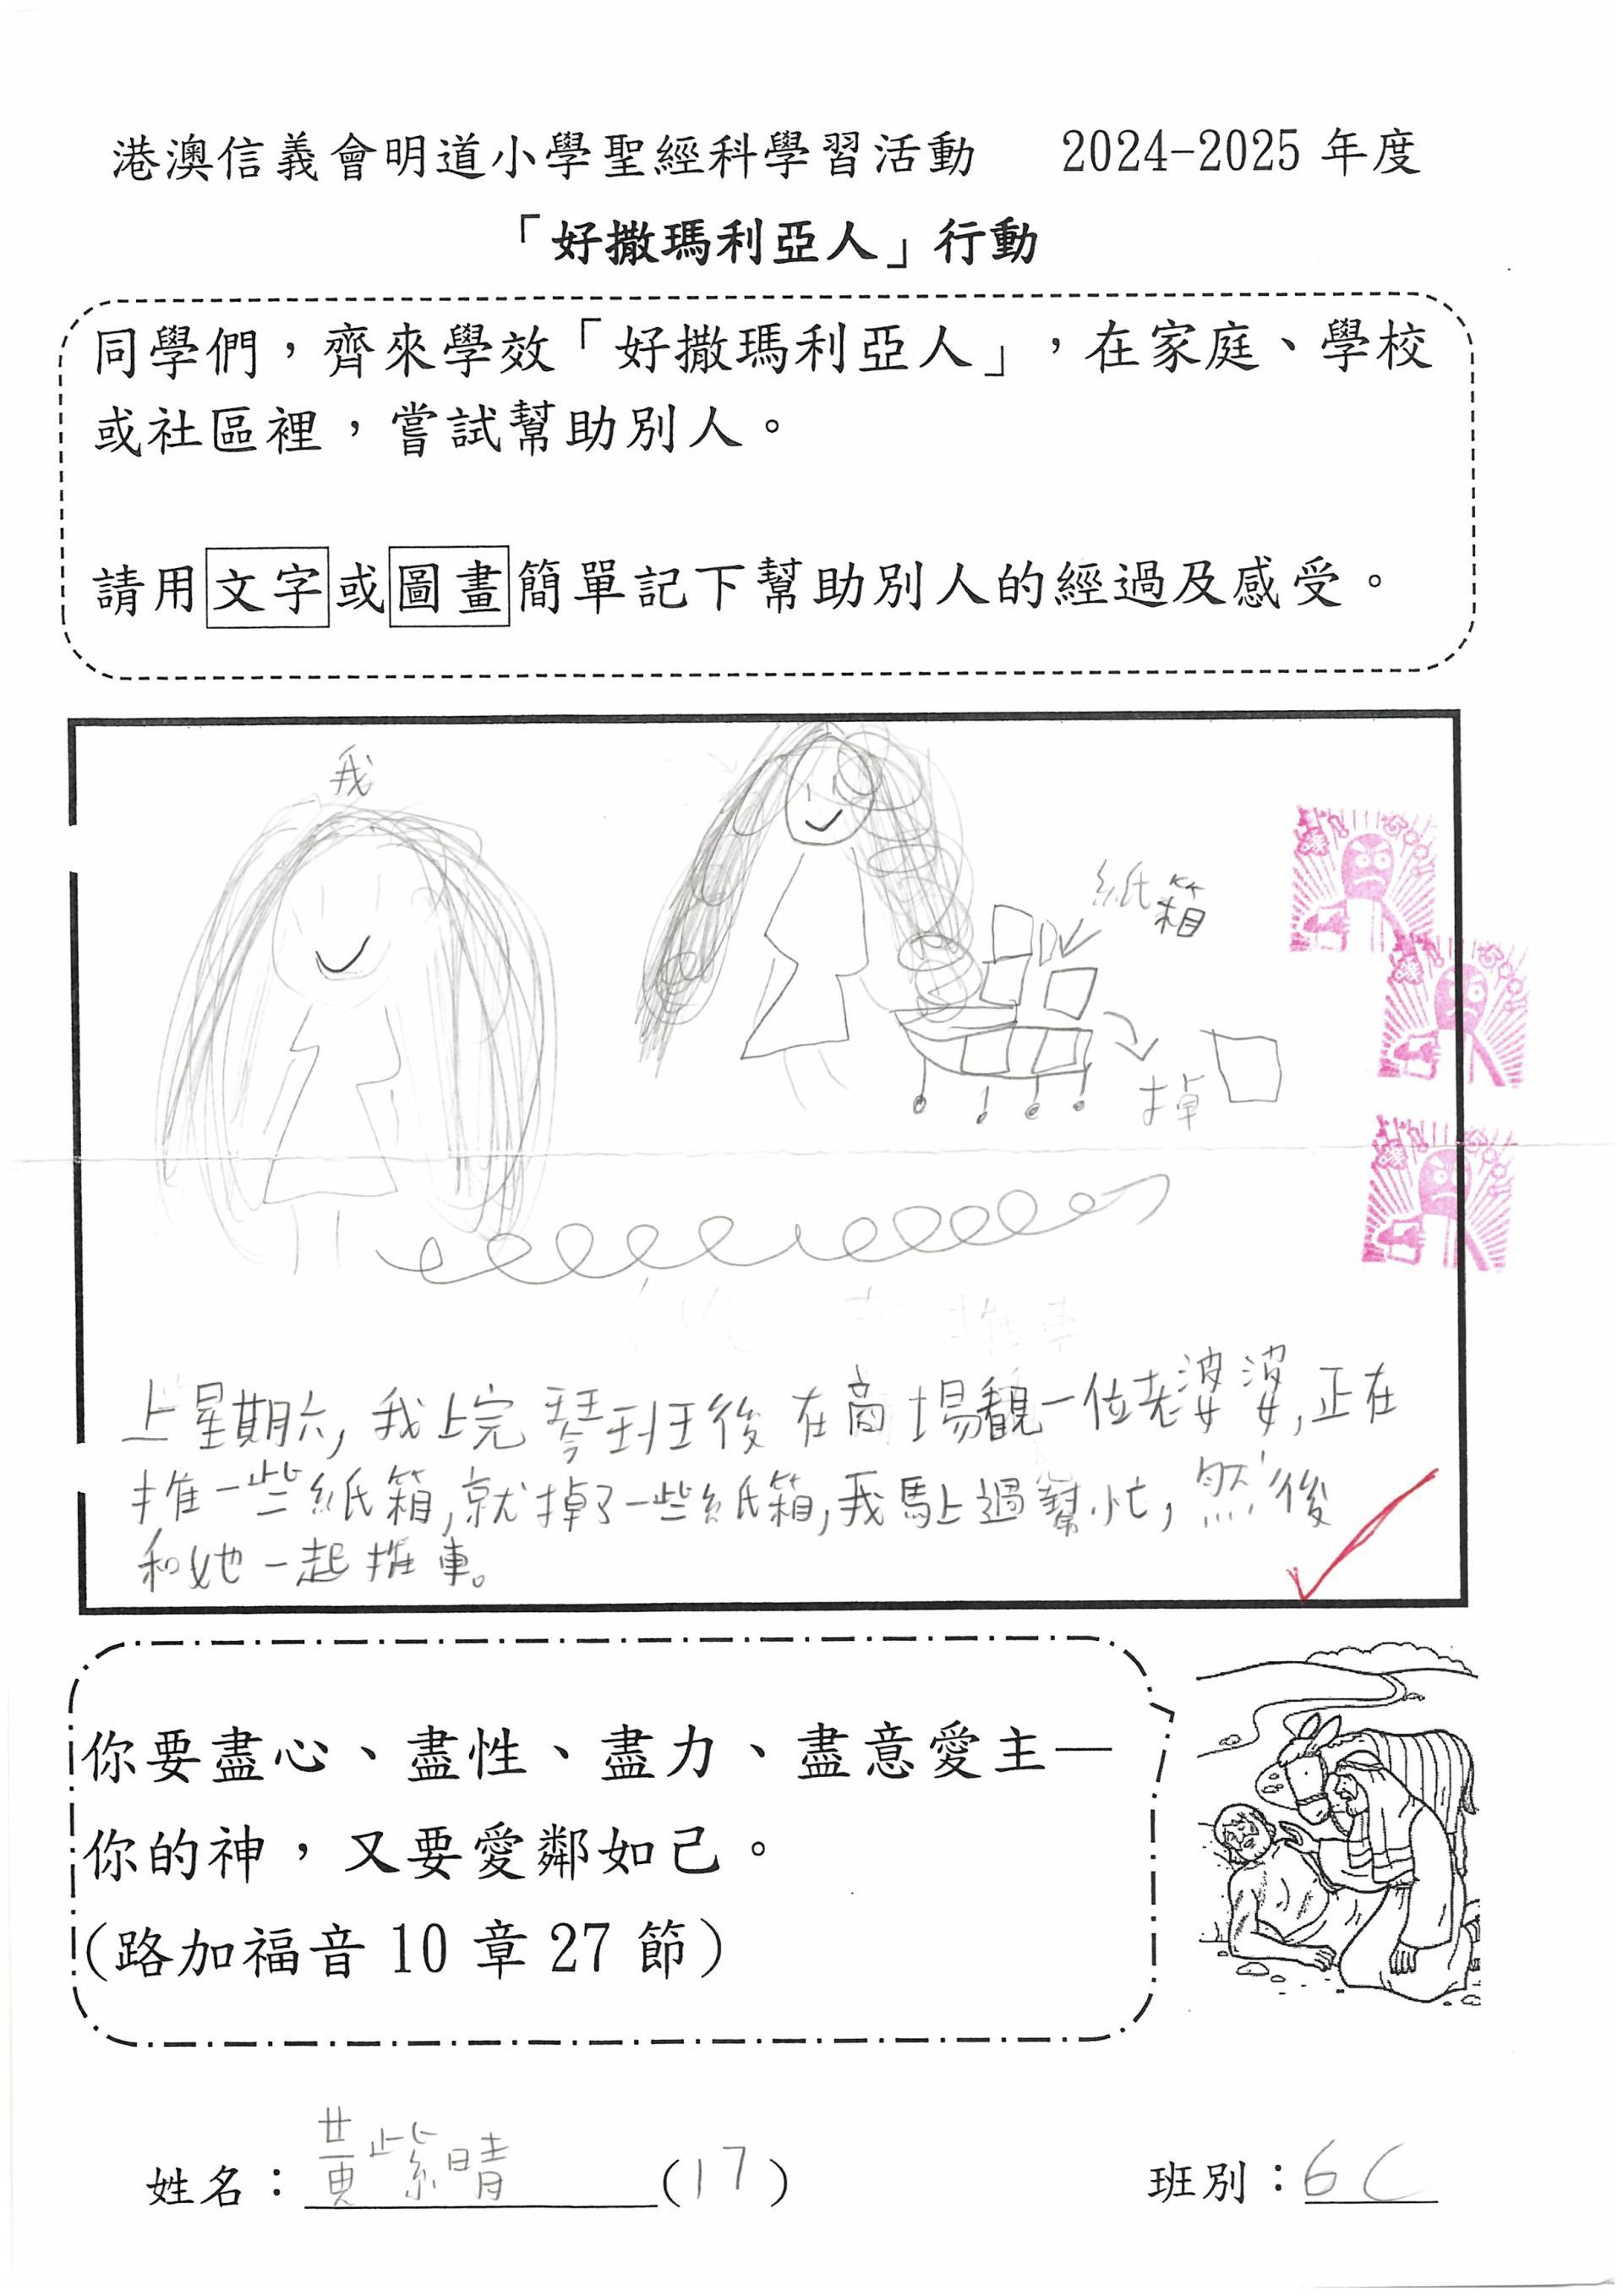 港澳信義會明道小學聖經科學習活動 2024-2025 年度
「好撒瑪利亞人」行動
同學們，齊來學效「好撒瑪利亞人」，在家庭、學校
或社區裡，嘗試幫助別人。
請用文字或圖畫簡單記下幫助別人的經過及感受。
我
紙箱
掉
上星期六，我上完琴班後在商場觀一位老婆婆，正在
推一些紙箱，就掉了一些紙箱，我馬上過幫忙，然後
和她一起推車。
你要盡心、盡性、盡力、盡意愛主—
你的神，又要愛鄰如己。
(路加福音 10 章 27 節)
姓名：黃紫晴(17) 班別：6C